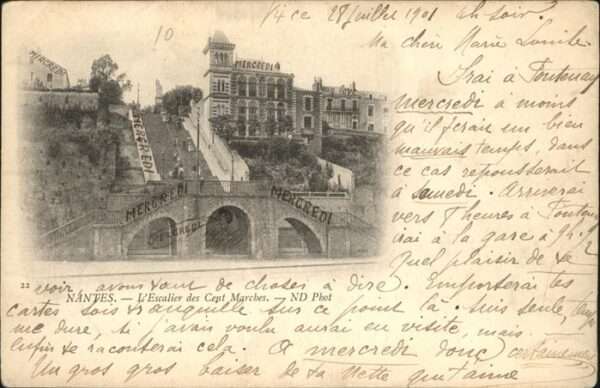 10
V/ce 28 Juillet 1901 Ch. soir.
Ma chère Marie Louise
J'irai à Fontenay
mercredi à moins
qu'il ferait un bien
mauvais temps, dans
ce cas repousserait
à samedi. Arriverai
vers 7 heures à
irai à la gare à
Quel plaisir de se
voir, avons tant de choses à dire. Emporterai tes
cartes sois tranquille sur ce point là. Suis seule,
me dure, si j'avais voulu aurai eu visite, mais
enfin te raconterai cela. A mercredi donc certainement
Un gros gros baiser de ta Nette qui t'aime
MERCREDI
MERCREDI
MERCREDI
MERCREDI
MERCREDI
MERCREDI
22
NANTES. — L'Escalier des Cent Marches. — ND Phot